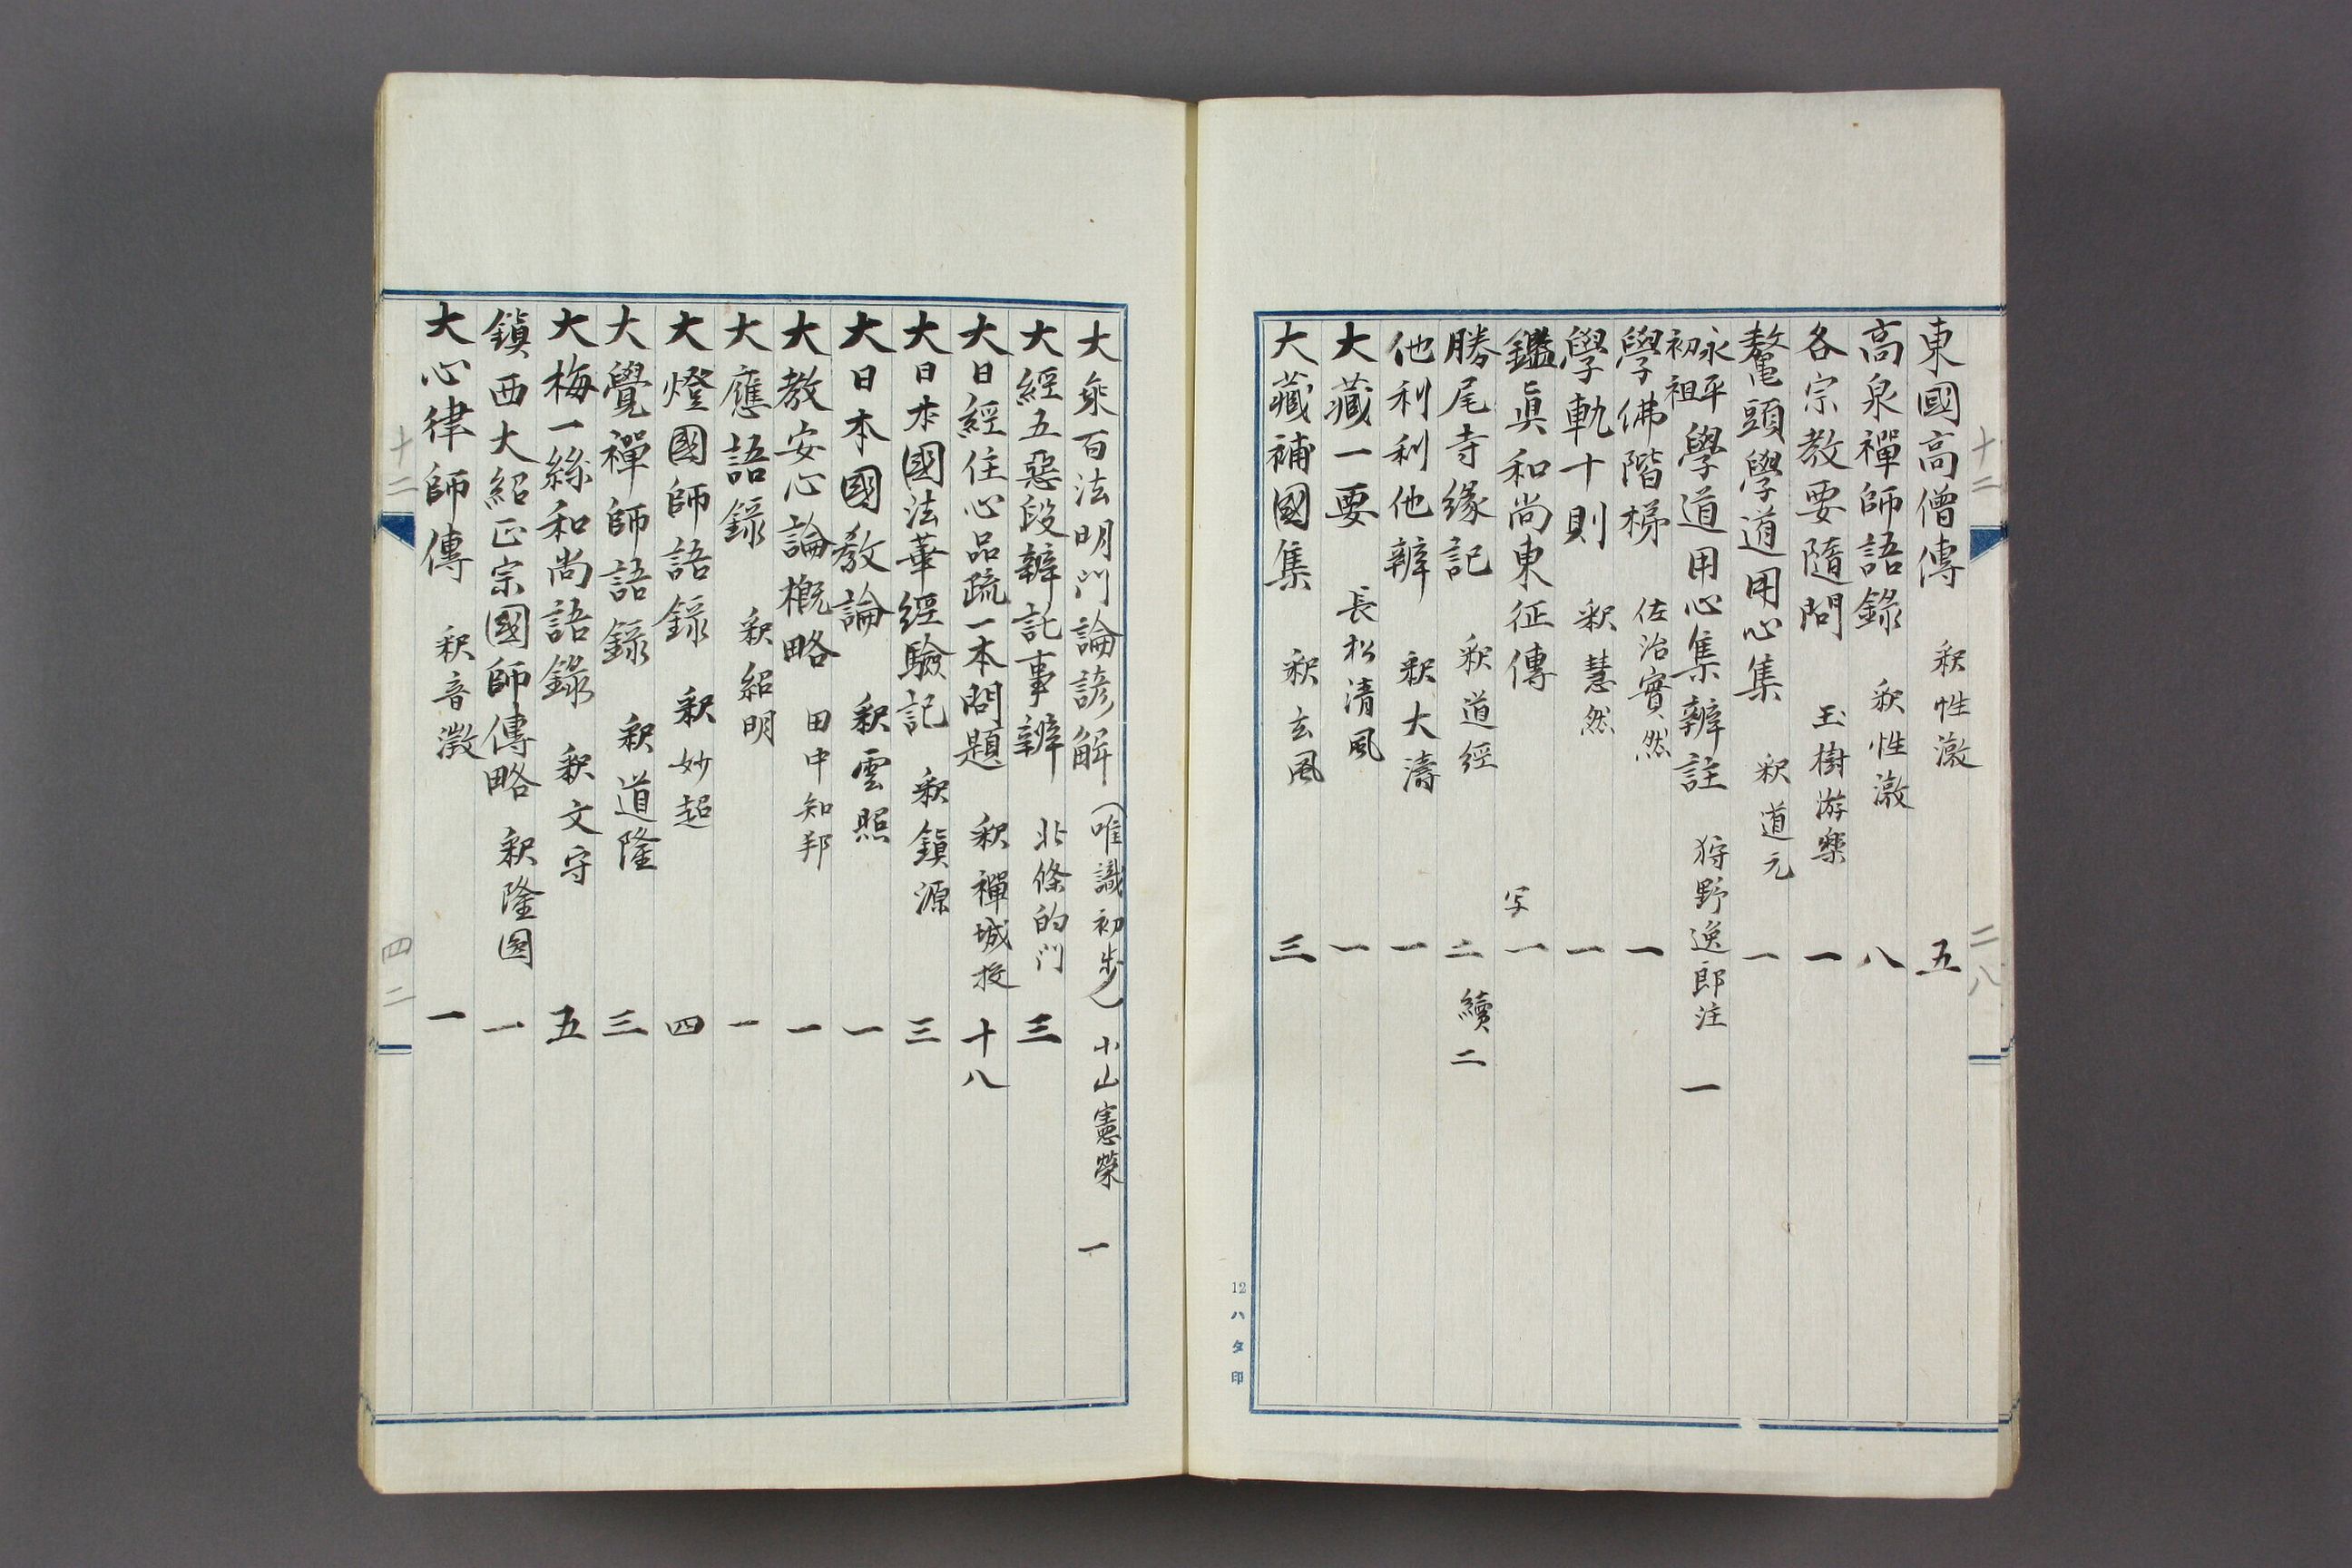 十二 二八
東國高僧傳 釈性潡 五
高泉禪師語錄 釈性潡 八
各宗教要隨問 玉樹游樂 一
鼇頭學道用心集 釈道元 一
永平初祖學道用心集辨註 狩野逸郎注 一
學佛階梯 佐治實然 一
學軌十則 釈慧然 一
鑑眞和尚東征傳 写 一
勝尾寺緣記 釈道經 二 續二
他利利他辨 釈大濤 一
大藏一要 長松清風 一
大藏補國集 釈玄風 三
12ハタ印
大乘百法明門論諺解(唯識初步) 小山憲榮 一
大經五惡段辨託事辨 北條的門 三
大日經住心品疏一本問題 釈禪城投 十八
大日本國法華經驗記 釈鎭源 三
大日本國敎論 釈雲照 一
大教安心論概略 田中知邦 一
大應語錄 釈紹明 一
大燈國師語錄 釈妙超 四
大覺禪師語錄 釈道隆 三
大梅一絲和尚語錄 釈文守 五
鎭西大紹正宗國師傳略 釈隆圓 一
大心律師傳 釈音澂 一
十二 四二